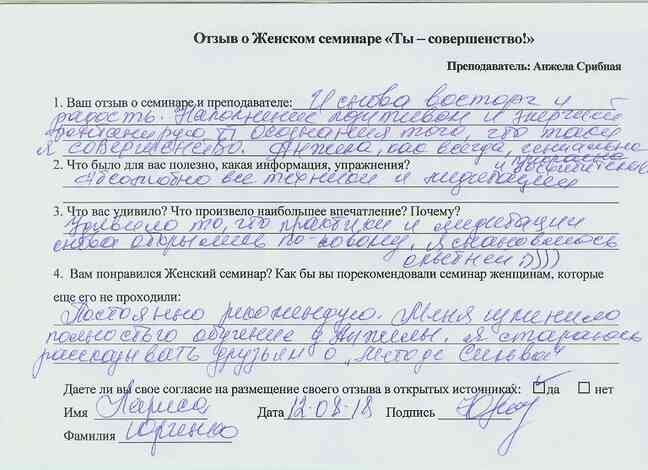 Отзыв о Женском семинаре «Ты – совершенство!»
Преподаватель: Анжела Срибная
1. Ваш отзыв о семинаре и преподавателе: И снова восторг и
радость. Наполнение позитивом и энергией
осознания того, что такое
я совершенство. Анжела, как всегда, гениальна
2. Что было для вас полезно, какая информация, упражнения? и восхитительна
Абсолютно все техники и медитации
3. Что вас удивило? Что произвело наибольшее впечатление? Почему?
Удивило то, что практики и медитации
снова открылись по-новому, я становлюсь
опытней :))))
4. Вам понравился Женский семинар? Как бы вы порекомендовали семинар женщинам, которые
еще его не проходили:
Постоянно рекомендую. Меня изменило
полностью обучение у Анжелы, я стараюсь
рассказывать друзьям о „Методе Сильва"
Даете ли вы свое согласие на размещение своего отзыва в открытых источниках: да нет
Имя Лариса Дата 12.08.18 Подпись
Фамилия Юрченко